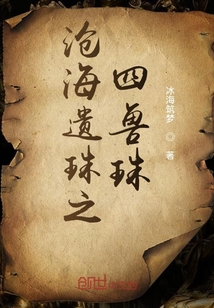 沧海遗珠之
四兽珠
冰海筑梦 ◎ 著
创世